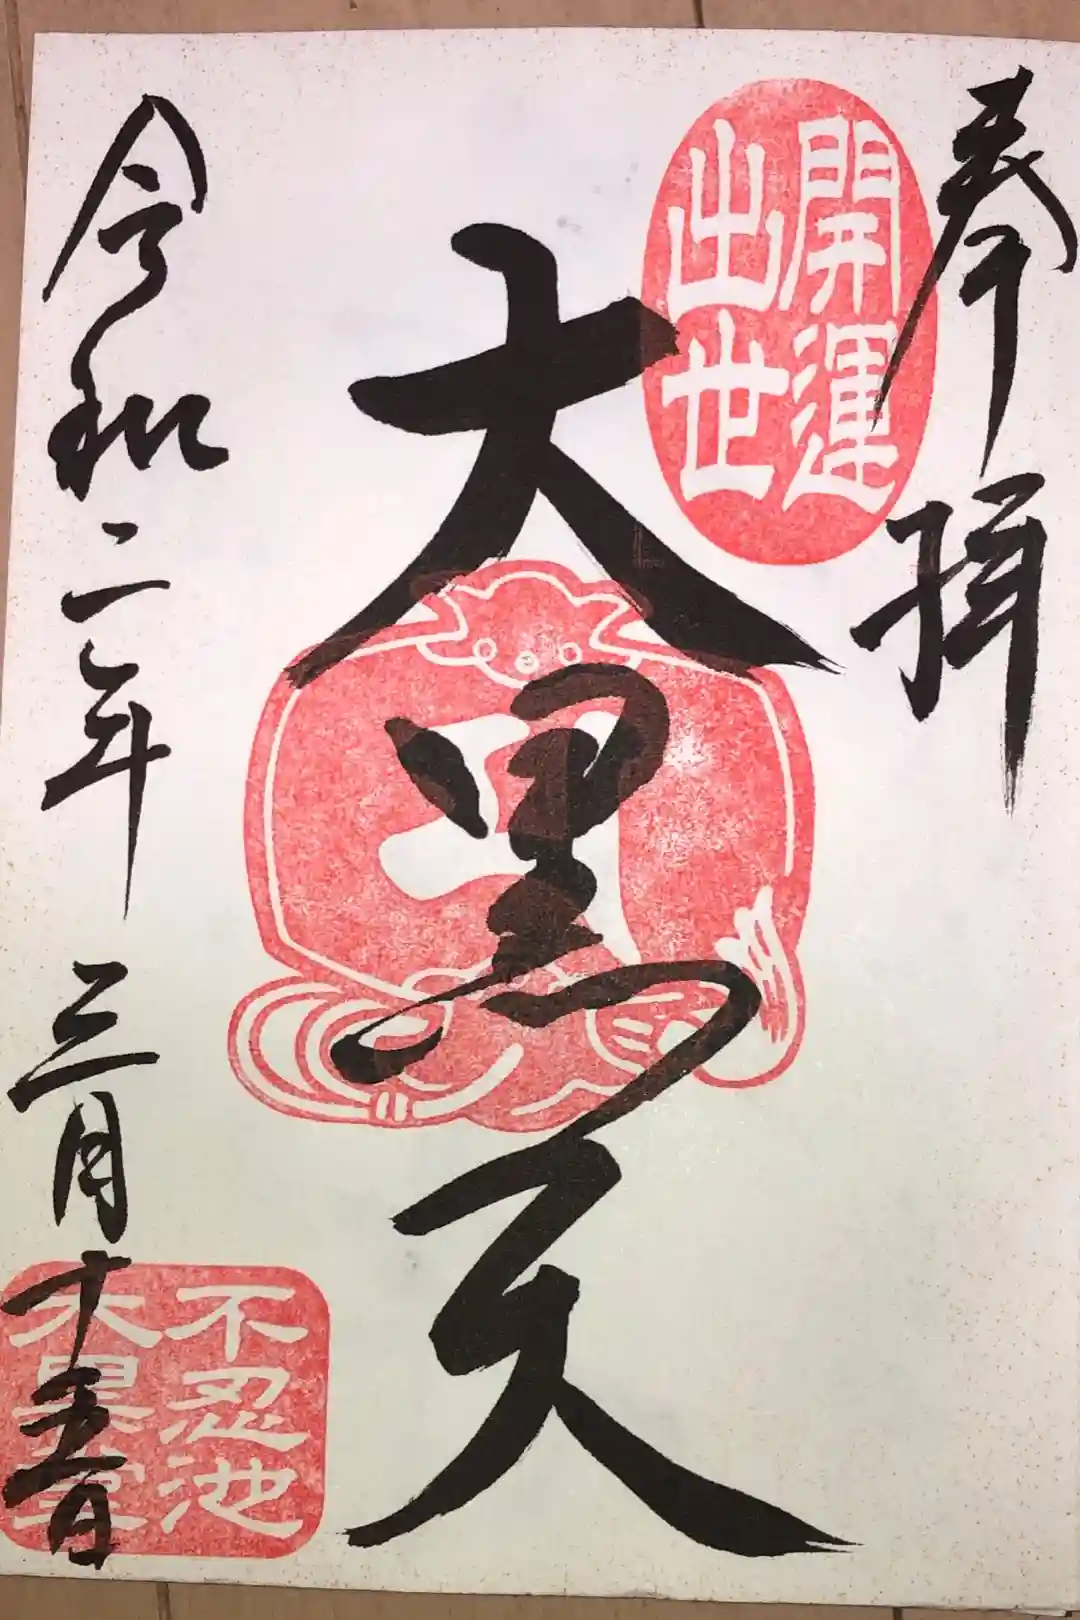 奉拝
開運
出世
大黒天
令和二年三月十五日
不忍池
大黒堂